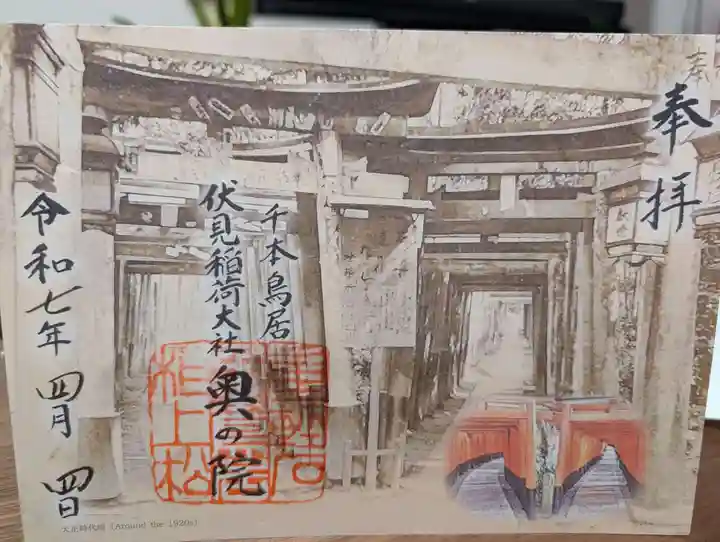 奉拝
千本鳥居
伏見稲荷大社
奥の院
令和七年 四月 四日
大正時代頃 (Around the 1920s)